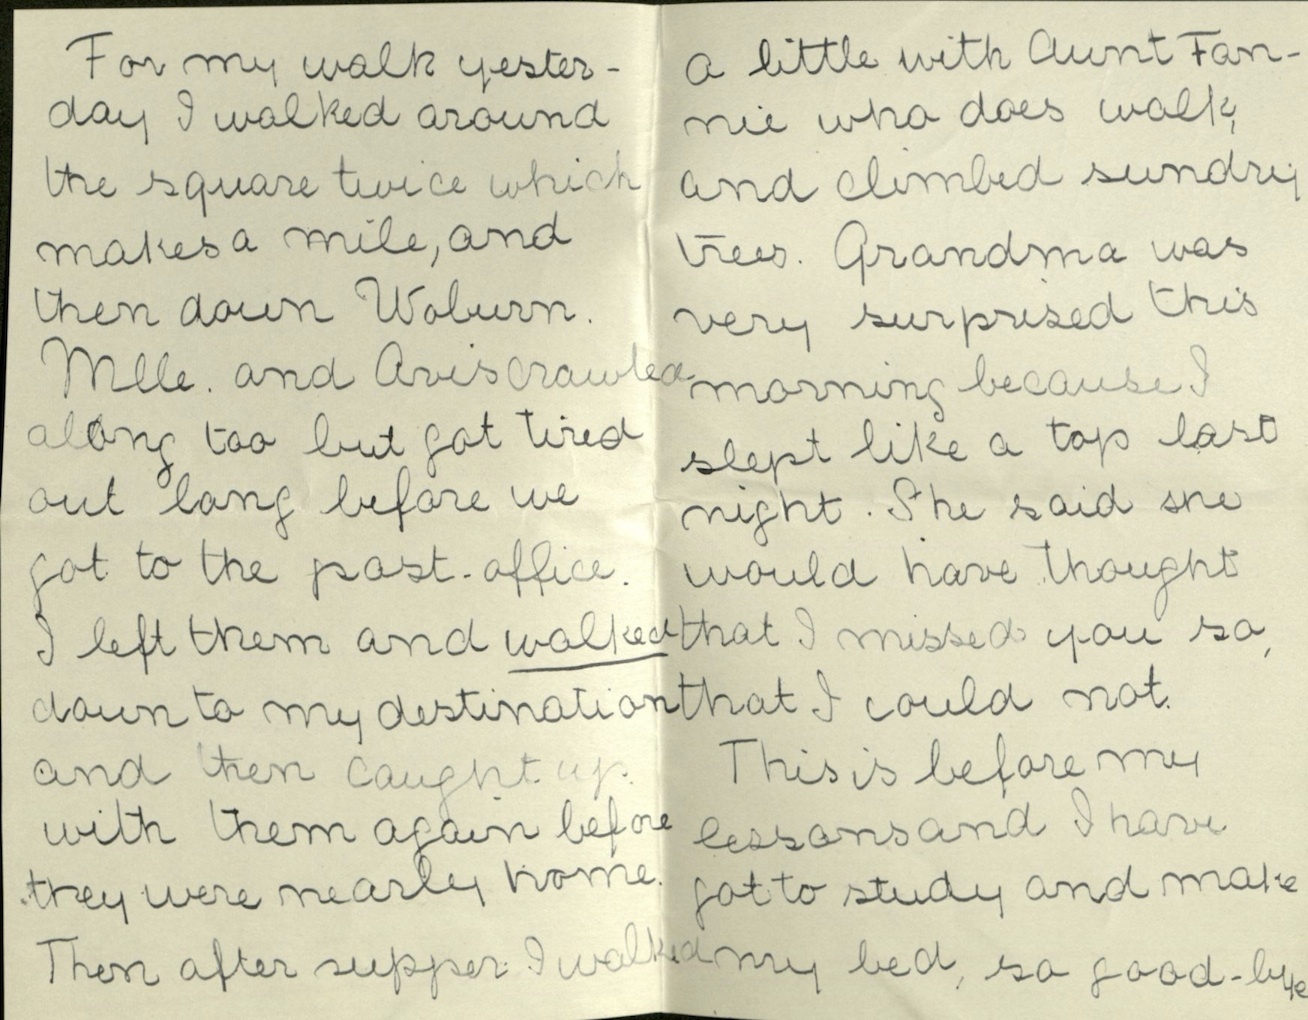 For my walk yester-
day I walked around
the square twice which
makes a mile, and
then down Woburn.
Mlle. and Avis crawled
along too but got tired
out long before we
got to the post-office.
I left them and walked
down to my destination
and then caught up
with them again before
they were nearly home.
Then after supper I walked
a little with Aunt Fan-
nie who does walk,
and climbed sundry
trees. Grandma was
very surprised this
morning because I
slept like a top last
night. She said she
would have thought
that I missed you so,
that I could not.
This is before my
lessons and I have
got to study and make
my bed, so good-bye